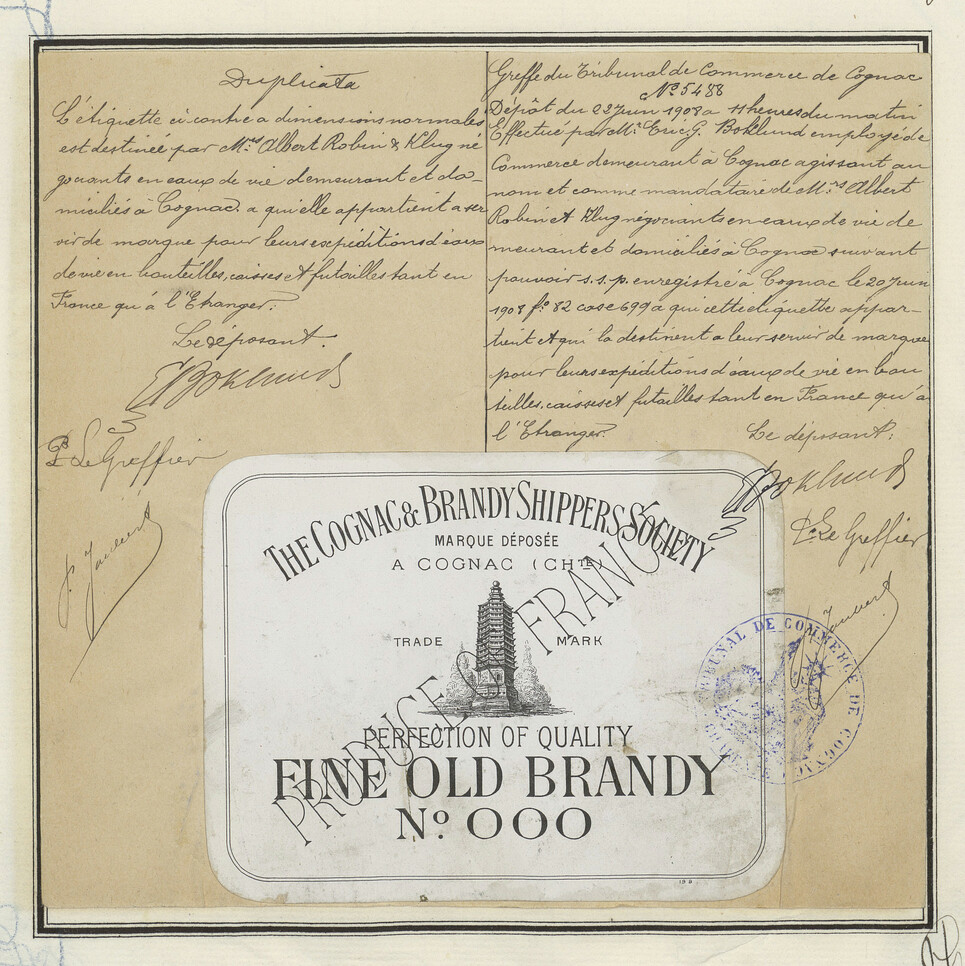 Duplicata
L'étiquette ci-contre a dimensions normales
est destinée par Mrs Albert Robin & Klug né
gociants en eaux de vie demeurant et do-
miciliés à Cognac. a qui elle appartient a ser
vir de marque pour leurs expéditions d'eaux
de vie en bouteilles, caisses et futailles tant en
France qu'à l'Etranger.
Le déposant.
EGBoklund
Pr Le Greffier
Greffe du Tribunal de Commerce de Cognac
No 5488
Dépôt du 22 Juin 1908 a 11 heures du matin
Effectué par Mr Eric G. Boklund employé de
Commerce demeurant à Cognac agissant au
nom et comme mandataire de Mrs Albert
Robin et Klug négociants en eaux de vie de
meurant et domiciliés à Cognac suivant
pouvoir s.s.p. enregistré à Cognac le 20 Juin
1908 fo 82 case 699 a qui cette étiquette appar-
tient et qui la destinent a leur servir de marque
pour leurs expéditions d'eaux de vie en bou
teilles, caisses et futailles tant en France qu'à
l'Etranger.
Le déposant:
EGBoklund
Pr Le Greffier
THE COGNAC & BRANDY SHIPPERS SOCIETY
MARQUE DÉPOSÉE
A COGNAC (CHTE)
TRADE MARK
PRODUCE OF FRANCE
PERFECTION OF QUALITY
FINE OLD BRANDY
No. 000
TRIBUNAL DE COMMERCE DE COGNAC